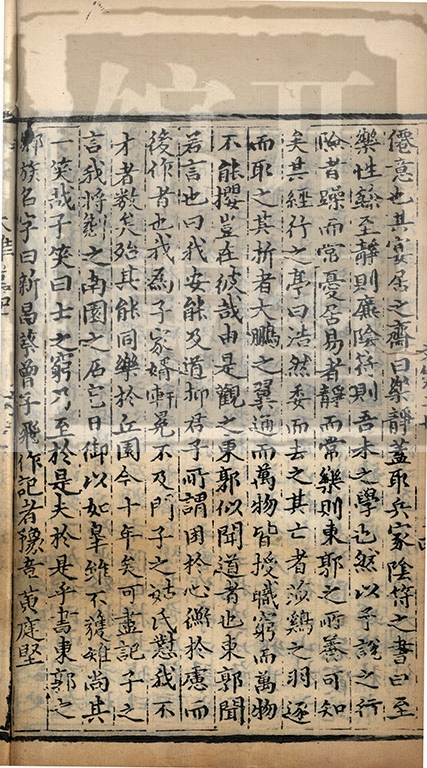 僊意也其宴居之齋曰樂靜蓋取兵家陰符之書曰至
樂性餘至靜則廉陰符則吾未之學也然以予說之行
險者躁而常憂居易者靜而常樂則東郭之所養可知
矣其經行之亭曰浩然委而去之其亡者泒鷄之羽逐
而取之其折者大鵬之翼通而萬物皆授職窮而萬物
不能攖豈在彼哉由是觀之東郭似聞道者也東郭聞
若言也曰我安能及道抑君子所謂困於心衡於慮而
後作者也我爲子家婿軒冕不及門子之姑氏懟我不
才者數矣殆其能同樂於丘園今十年矣可盡記子之
言我將劖之南園之石它日御以如皐雖不獲雉尚其
一笑哉予笑曰士之窮乃至於是夫於是乎書東郭之
鄉族名字曰新昌蔡曾子飛作記者豫章黃庭堅